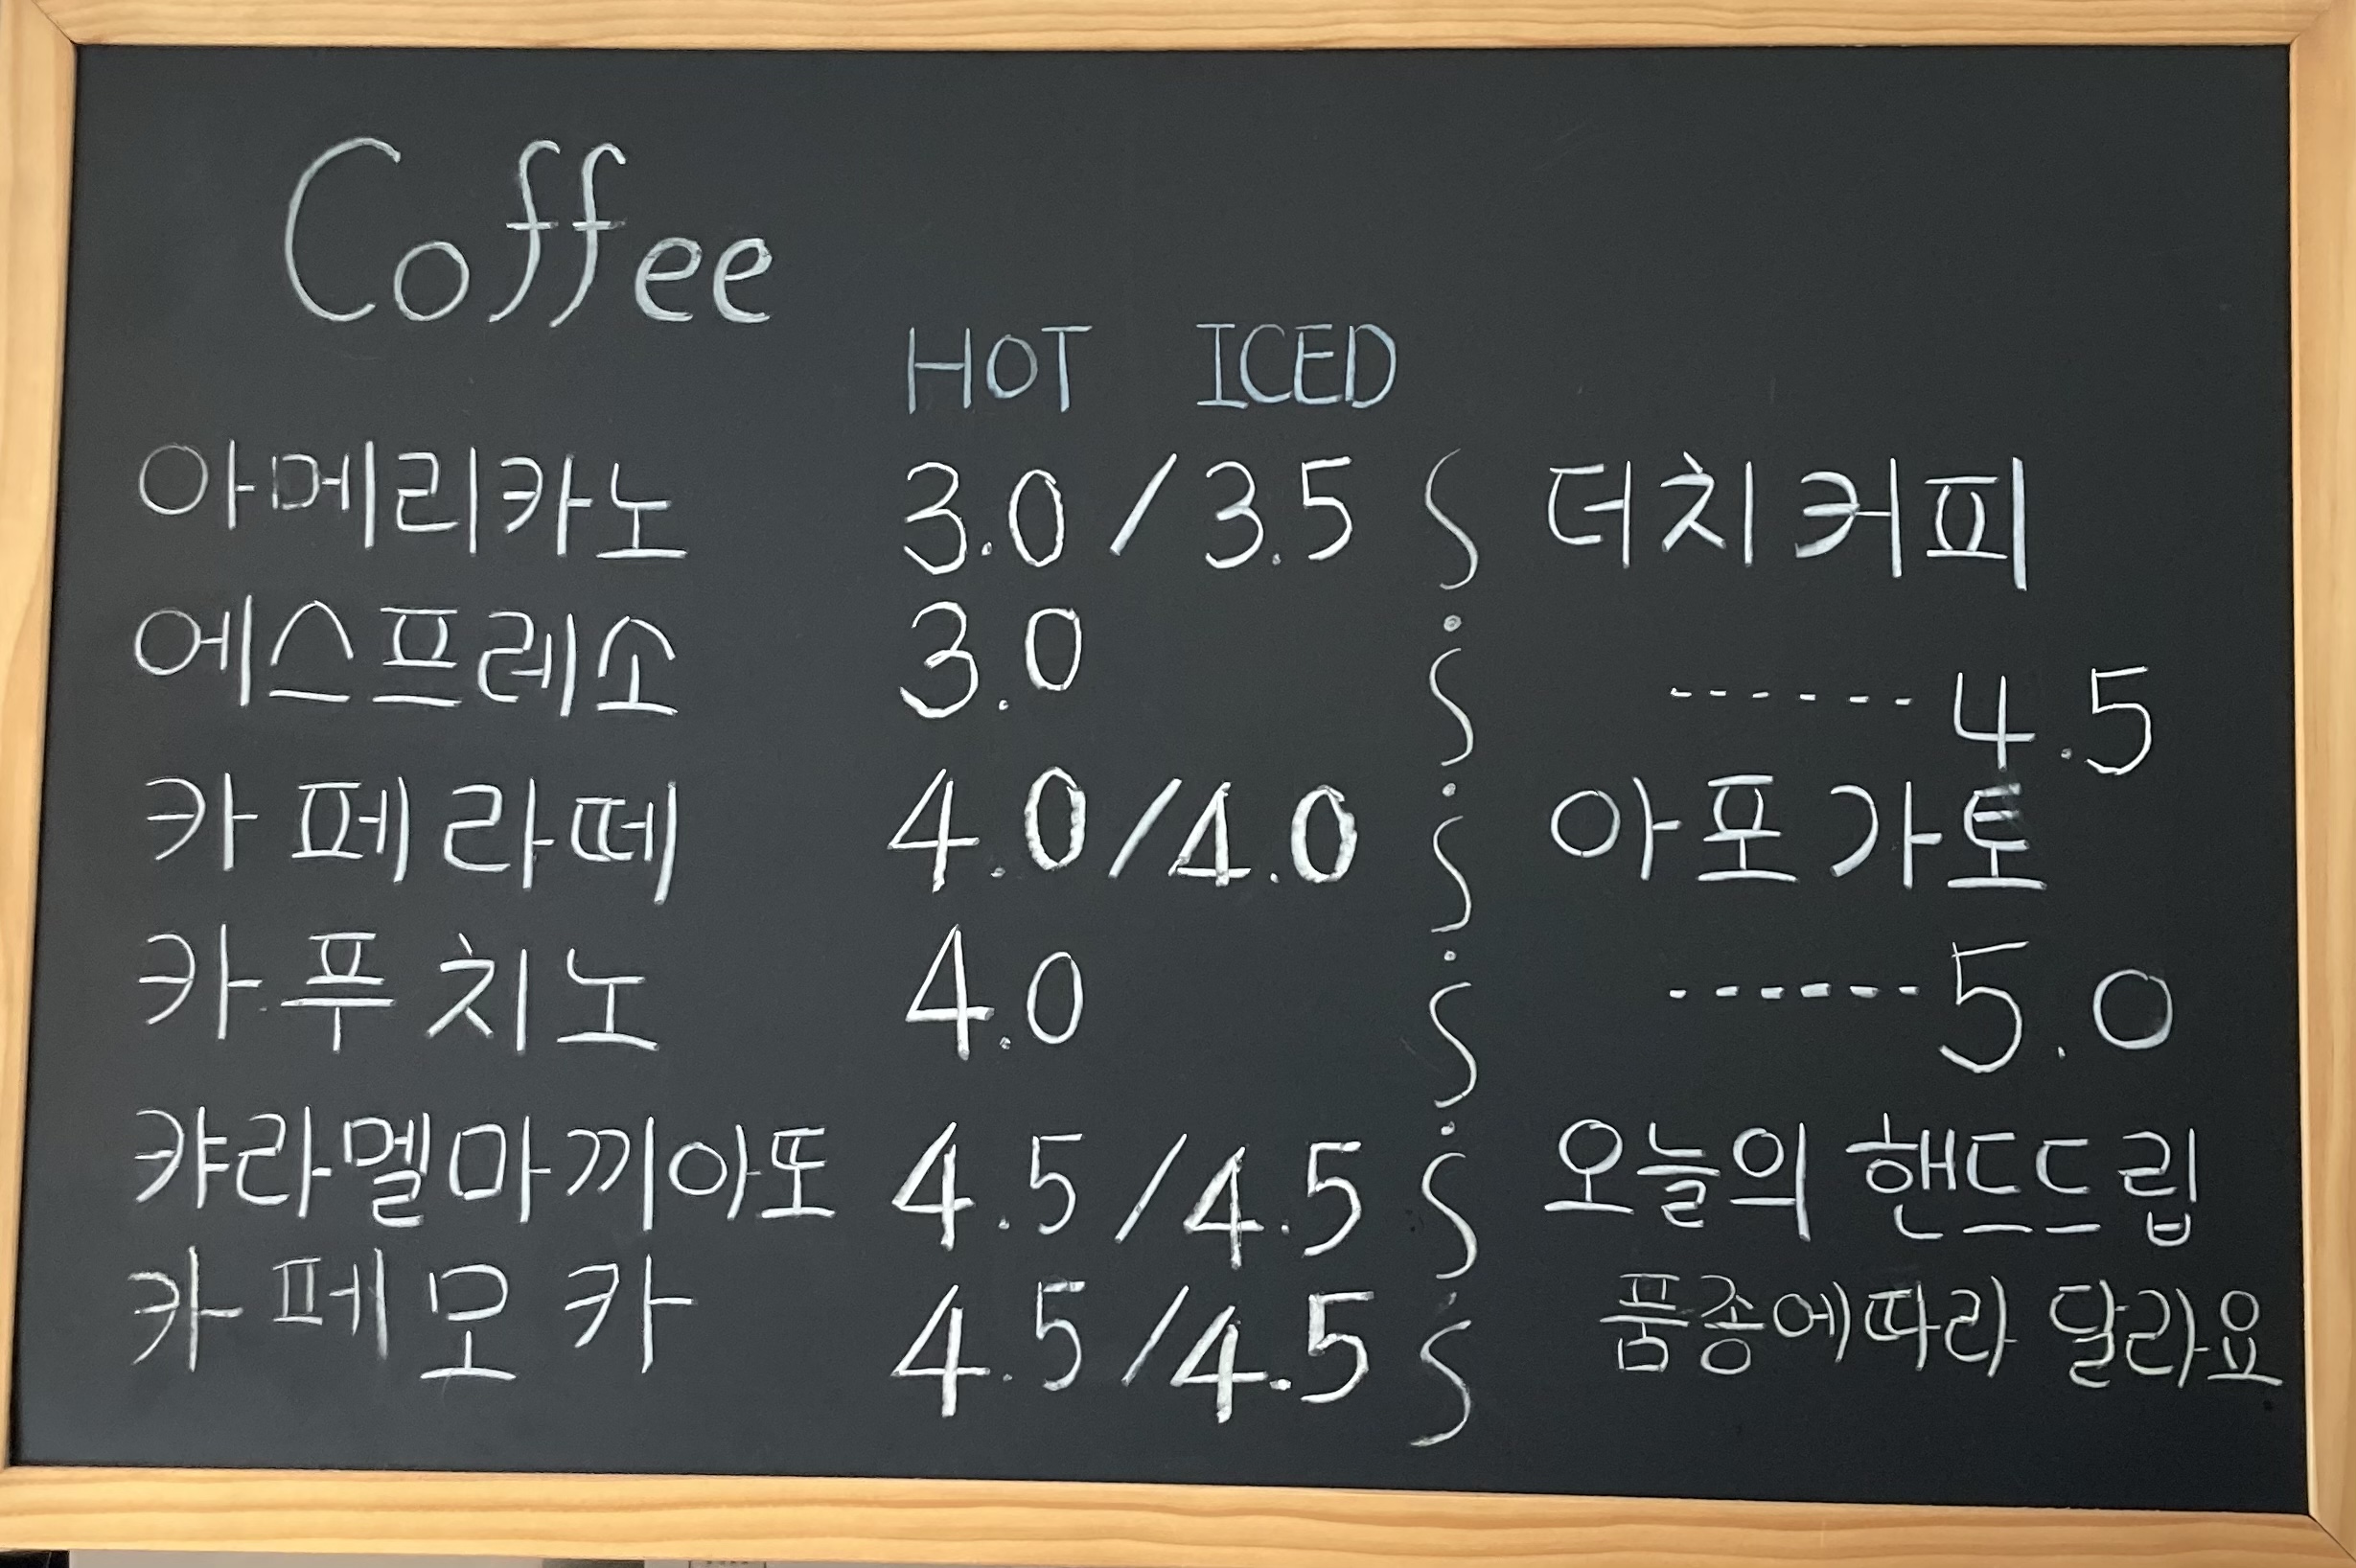 Coffee
HOT ICED
아메리카노 3.0 / 3.5
에스프레소 3.0
카페라떼 4.0 / 4.0
카푸치노 4.0
캬라멜마끼아또 4.5 / 4.5
카페모카 4.5 / 4.5
더치커피
------ 4.5
아포가토
------ 5.0
오늘의 핸드드립
품종에따라 달라요